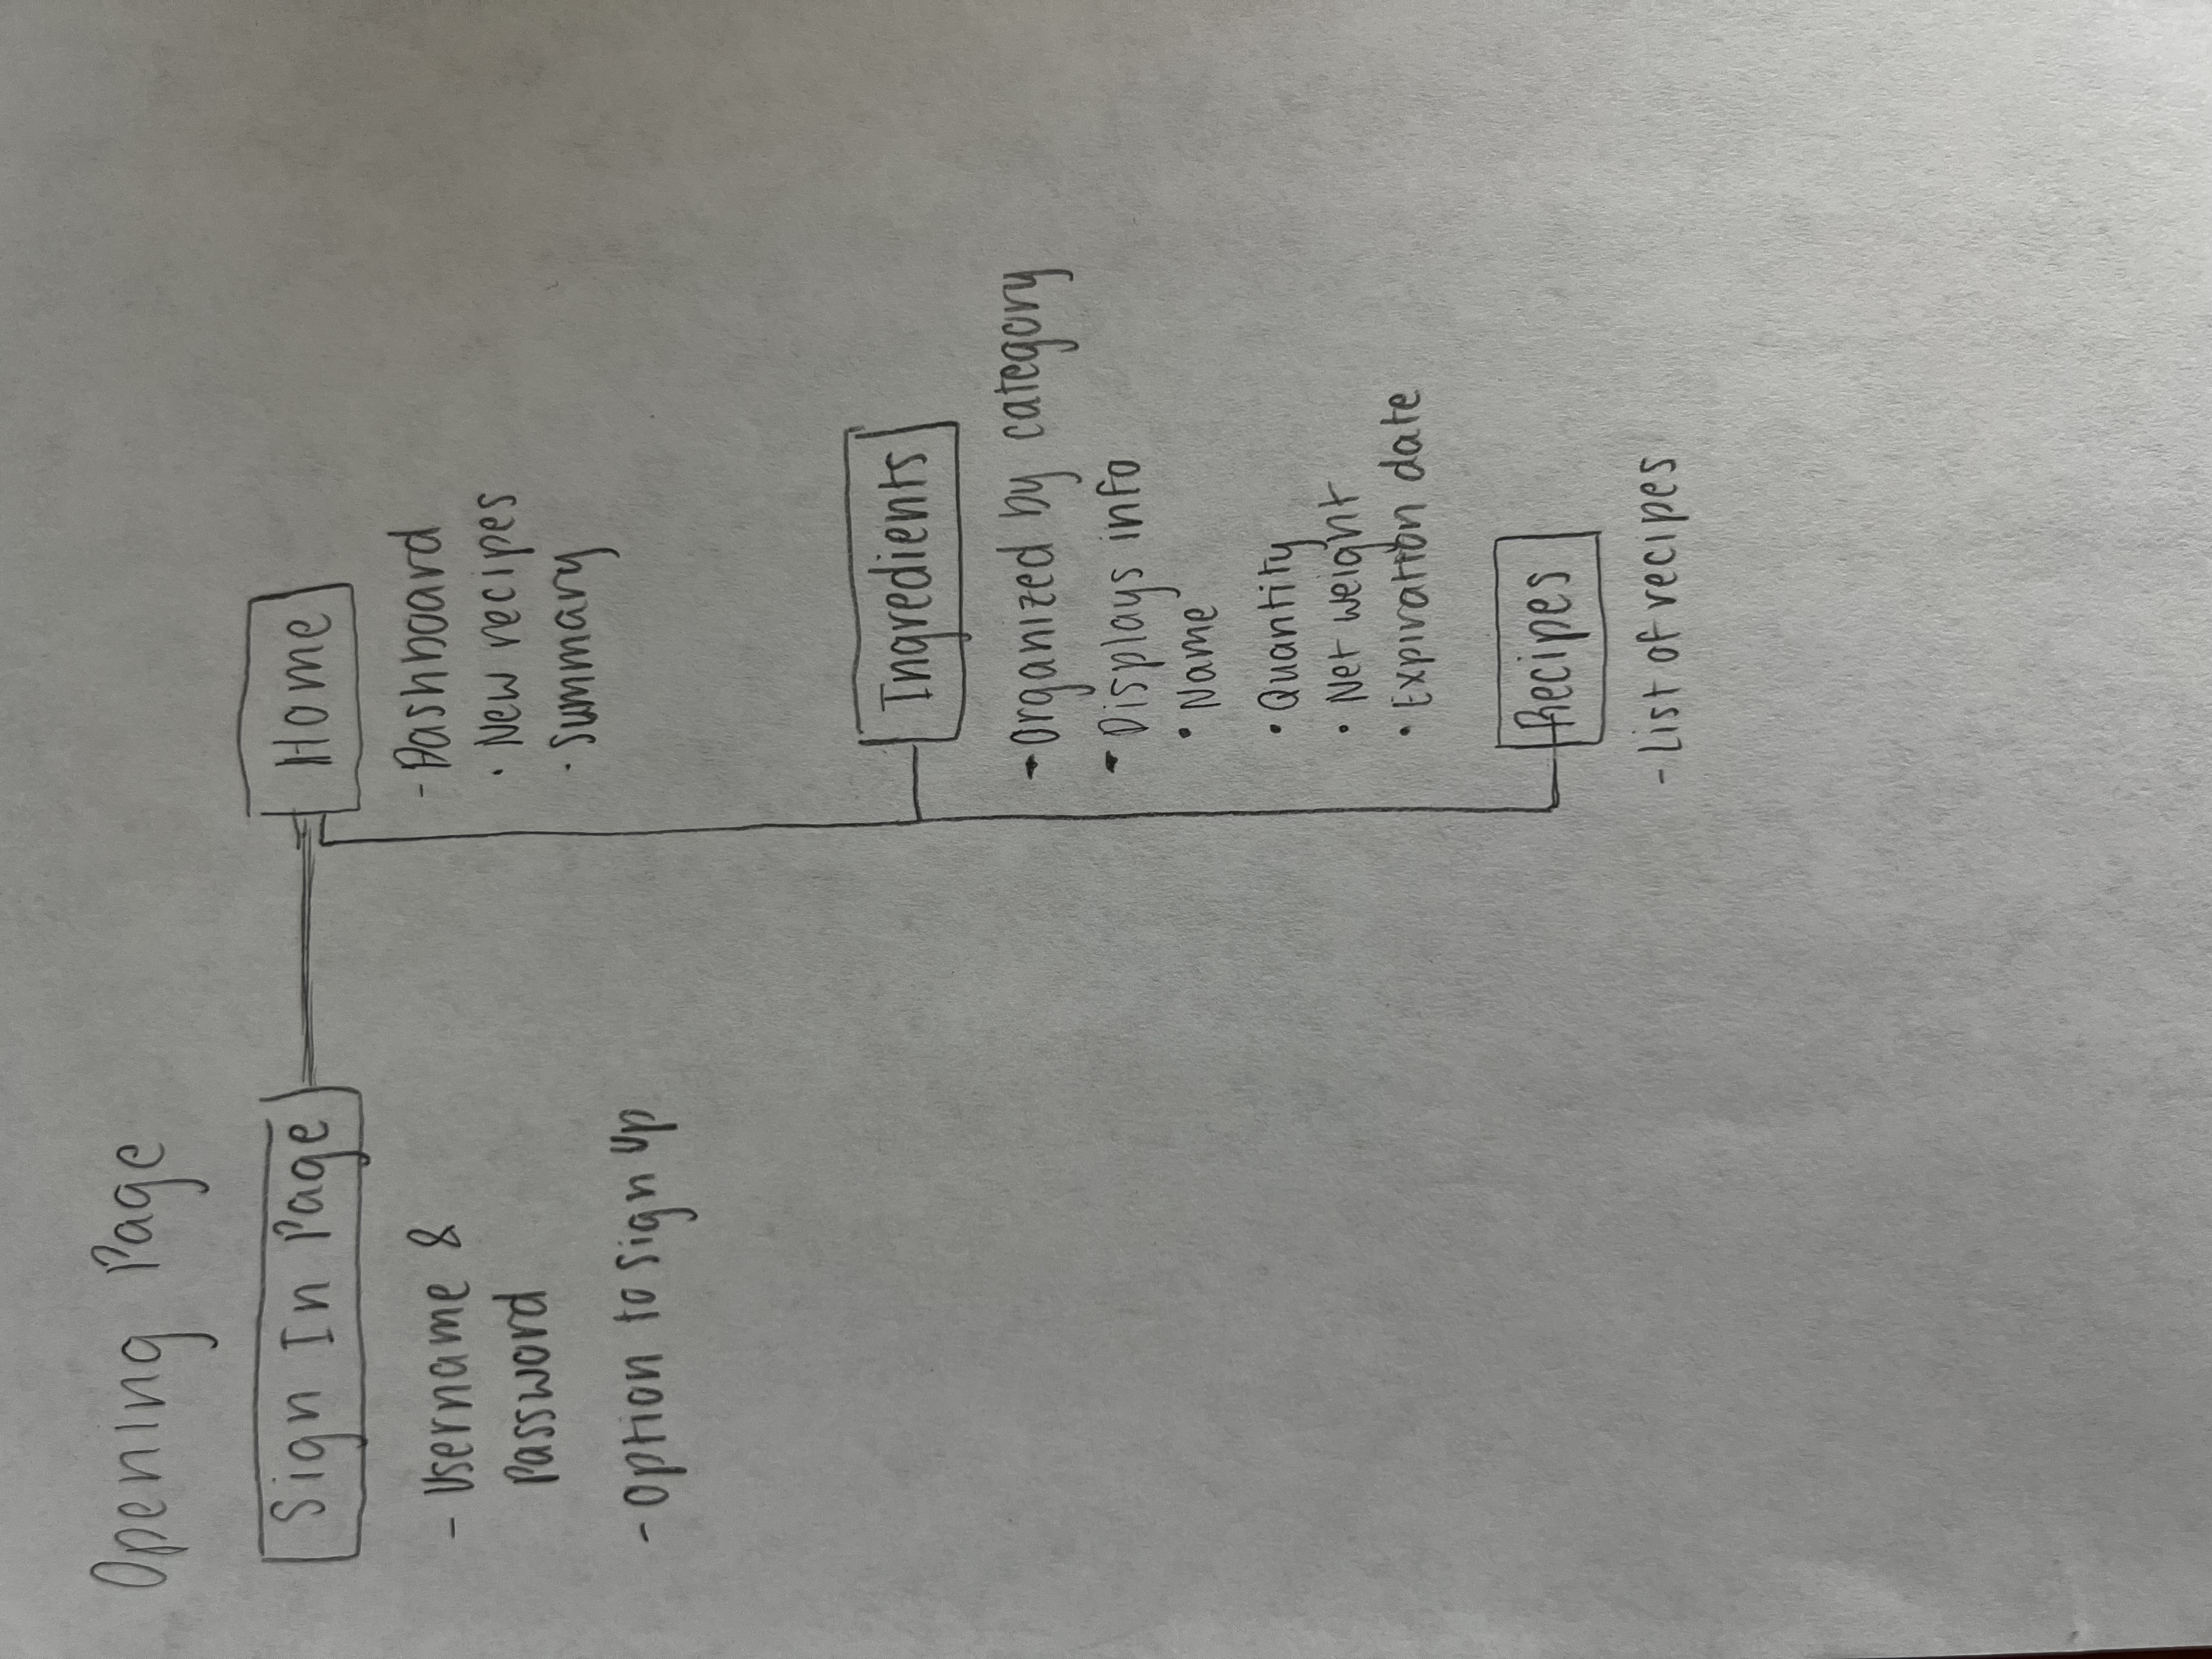 Opening Page
Sign In Page
- Username &
Password
- Option to Sign Up
Home
- Dashboard
• New recipes
• Summary
Ingredients
- Organized by category
- Displays info
• Name
• Quantity
• Net weight
• Expiration date
Recipes
- List of recipes